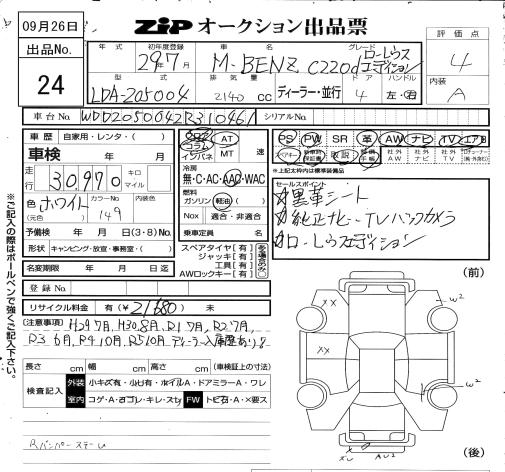 09月26日 ZIP オークション出品票
出品No. 24
評価点 4
内装 A
年式 初年度登録 29年7月
車名 M-BENZ C220d
グレード ローレウスエディション
型式 LDA-205004
排気量 2140 cc
ディーラー・並行
ドア 4
ハンドル 左・右
車台No. WDD2050042R310461 シリアルNo.
車歴 自家用・レンタ・( )
車検 年 月
走行 30,970 キロ マイル
色 ホワイト (元色)
カラーNo 149
内装色
予備検 年 月 日(3・8)No.
形状 キャンピング・放宣・事務室・( )
名変期限 年 月 日迄
登録No.
リサイクル料金 有(¥21580) 未
コラム インパネ
AT MT 速
冷房 無・C・AC・AAC・WAC
燃料 ガソリン 軽油 ( )
Nox 適合・非適合
乗車定員 名
スペアタイヤ[有]
ジャッキ[有]
工具[有]
AWロックキー[有]
ある場合のみ○
PS PW SR 革 AW ナビ TV エアB
スペアキー 取説 社外AW 社外ナビ 社外TV
*上記太枠内は標準装備品
セールスポイント
黒革シート
純正ナビ・TV バックカメラ
ローレウスエディション
[注意事項] H29 7月, H30.8月, R1 7月, R2 7月,
R3 6月, R4 10月, R5 10月 ディーラー入庫歴あり
長さ cm 幅 cm 高さ cm (車検証上の寸法)
検査記入 外装 小キズ有・小凹有・ホイルA・ドアミラーA・ワレ
室内 コゲ・A・ヨゴレ・キレ・スレ FW トビ石・A・X要ス
Rバンパーステー
※ご記入の際はボールペンで強くご記入下さい。
(前)
XX
W2
XX
W2
XU
AU2
(後)